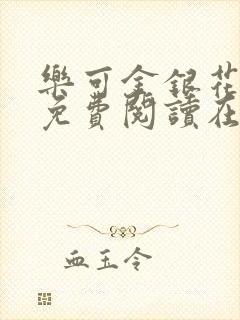 樂可金銀花
免費閱讀在
血玉令